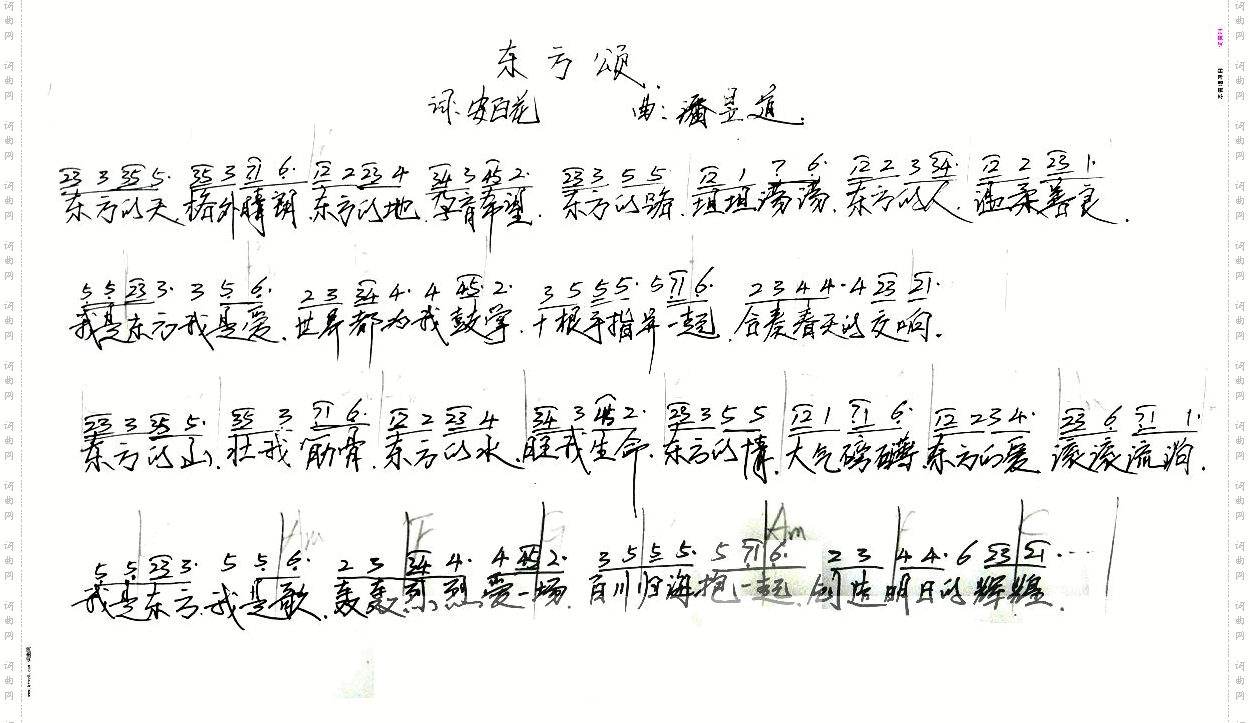 东方颂
词:安百花 曲:潘昱道
23 3 35 5· 35 3 71 6· 12 2 23 4 34 3 45 2· 23 3 5 5 12 1 7 6· 12 2 3 34· 12 2 23 1·
东方的天,格外晴朗,东方的地,孕育希望,东方的路,坦坦荡荡,东方的人,温柔善良,
5 5 23 3· 3 5 6· 2 3 34 4· 4 45 2· 3 5 5 5· 5 71 6· 2 3 4 4· 4 23 21·
我是东方我是爱,世界都为我鼓掌,十根手指并一起,合奏春天的交响。
23 3 35 5· 35 3 71 6· 12 2 23 4 34 3 45 2· 23 3 5 5 12 1 71 6· 12 2 3 4· 23 6 71 1·
东方的山,壮我筋骨,东方的水,胜我生命,东方的情,大气磅礴,东方的爱 滚滚流淌,
Am F G Am F C
5 5 23 3· 5 5 6· 2 3 34 4· 4 45 2· 3 5 5 5· 5 71 6· 2 3 4 4· 6 23 21 ····
我是东方,我是歌,轰轰烈烈爱一场,百川归海抱一起,创造明日的辉煌.
词曲网